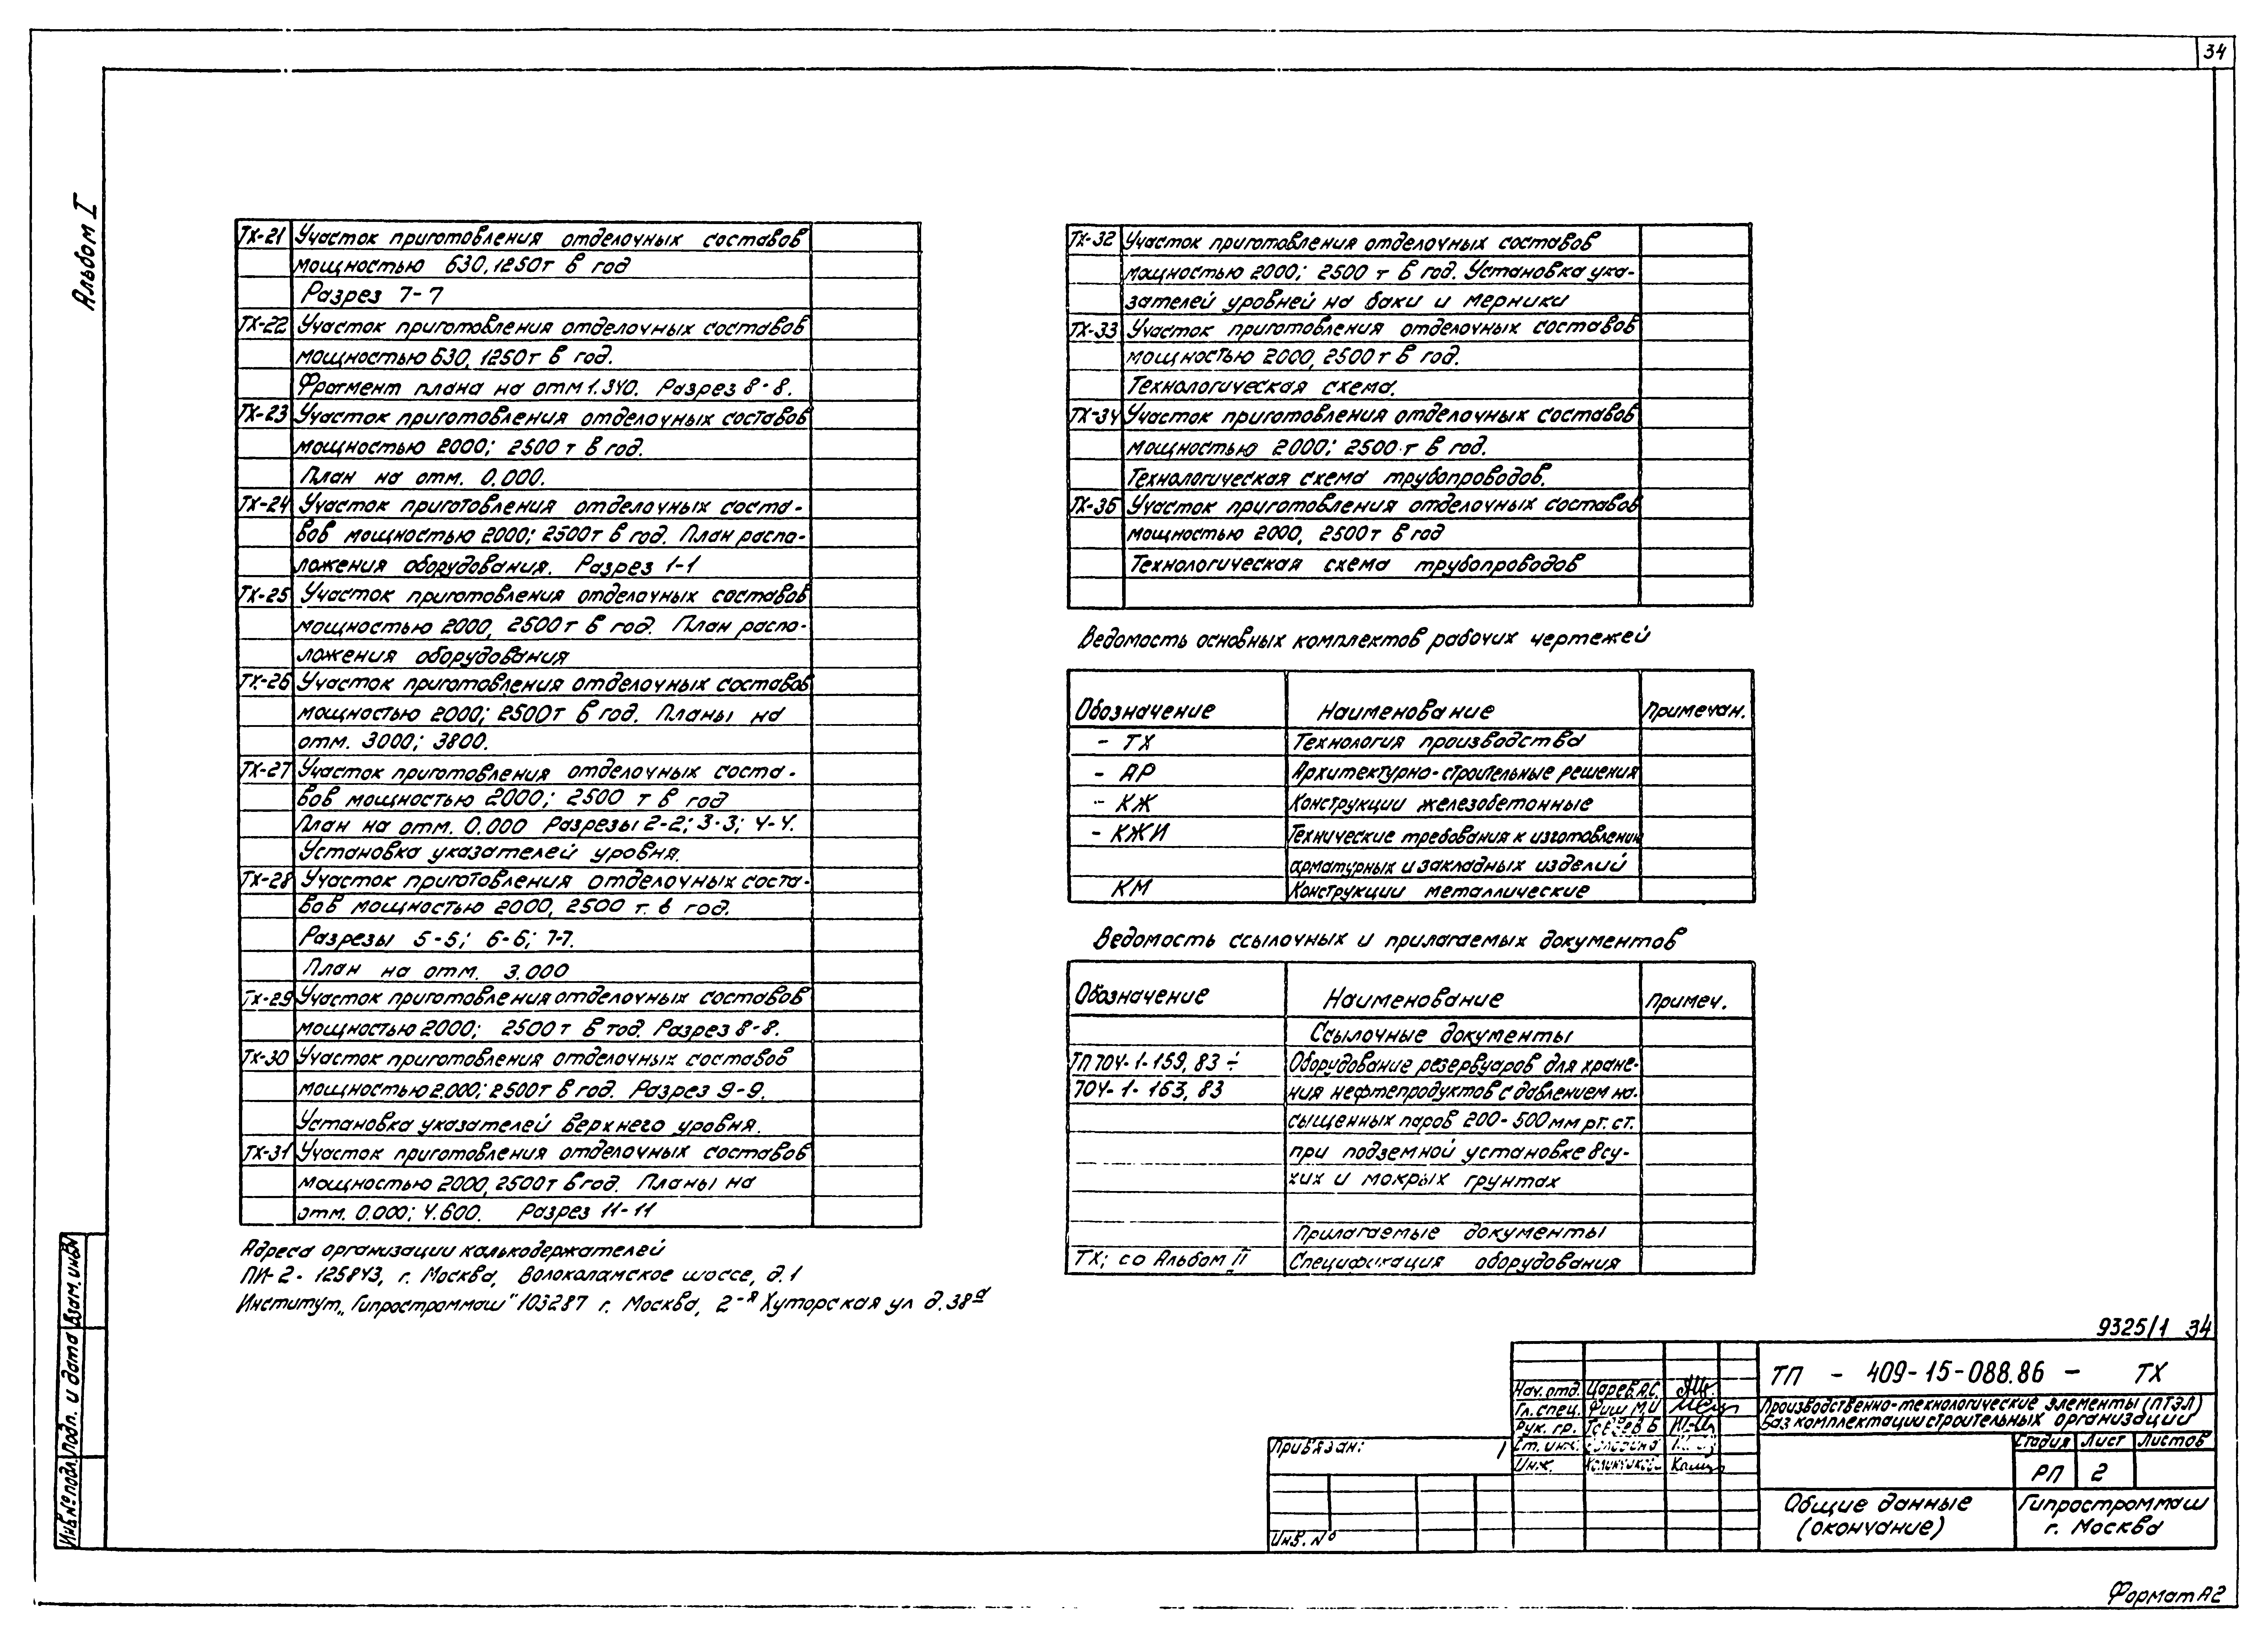 34
Альбом I
ТХ-21 Участок приготовления отделочных составов
мощностью 630, 1250т в год
Разрез 7-7
ТХ-22 Участок приготовления отделочных составов
мощностью 630, 1250т в год.
Фрагмент плана на отм 1.340. Разрез 8-8.
ТХ-23 Участок приготовления отделочных составов
мощностью 2000; 2500 т в год.
План на отм. 0.000.
ТХ-24 Участок приготовления отделочных соста-
вов мощностью 2000; 2500т в год. План распо-
ложения оборудования. Разрез 1-1
ТХ-25 Участок приготовления отделочных составов
мощностью 2000, 2500т в год. План распо-
ложения оборудования
ТХ-26 Участок приготовления отделочных составов
мощностью 2000; 2500т в год. Планы на
отм. 3000; 3800.
ТХ-27 Участок приготовления отделочных соста-
вов мощностью 2000; 2500 т в год
План на отм. 0.000 Разрезы 2-2; 3-3; 4-4.
Установка указателей уровня.
ТХ-28 Участок приготовления отделочных соста-
вов мощностью 2000, 2500 т. в год.
Разрезы 5-5; 6-6; 7-7.
План на отм. 3.000
ТХ-29 Участок приготовления отделочных составов
мощностью 2000; 2500т в год. Разрез 8-8.
ТХ-30 Участок приготовления отделочных составов
мощностью 2.000; 2500т в год. Разрез 9-9.
Установка указателей верхнего уровня.
ТХ-31 Участок приготовления отделочных составов
мощностью 2000, 2500т в год. Планы на
отм. 0.000; 4.600. Разрез 11-11
Адреса организации калькодержателей
ПИ-2 - 125843, г. Москва, Волоколамское шоссе, д.1
Институт „Гипростроммаш" 103287 г. Москва, 2-я Хуторская ул д.38а
ТХ-32 Участок приготовления отделочных составов
мощностью 2000; 2500 т в год. Установка ука-
зателей уровней на баки и мерники
ТХ-33 Участок приготовления отделочных составов
мощностью 2000, 2500т в год.
Технологическая схема.
ТХ-34 Участок приготовления отделочных составов
мощностью 2000; 2500 т в год.
Технологическая схема трубопроводов.
ТХ-35 Участок приготовления отделочных составов
мощностью 2000, 2500т в год
Технологическая схема трубопроводов
Ведомость основных комплектов рабочих чертежей
Обозначение Наименование Примечан.
- ТХ Технология производства
- АР Архитектурно-строительные решения
- КЖ Конструкции железобетонные
- КЖИ Технические требования к изготовлению
арматурных и закладных изделий
КМ Конструкции металлические
Ведомость ссылочных и прилагаемых документов
Обозначение Наименование Примеч.
Ссылочные документы
ТП 704-1-159, 83 ÷ Оборудование резервуаров для хране-
704-1-163, 83 ния нефтепродуктов с давлением на-
сыщенных паров 200-500мм рт. ст.
при подземной установке в су-
хих и мокрых грунтах
Прилагаемые документы
ТХ; со Альбом II Спецификация оборудования
9325/1 34
ТП - 409-15-088.86 - ТХ
Производственно-технологические элементы (ПТЭЛ)
баз комплектации строительных организаций
Нач. отд. Царев А.С.
Гл. спец. Фиш М.И
Рук. гр.
Ст. инж.
Инж.
Стадия Лист Листов
РП 2
Общие данные
(окончание)
Гипростроммаш
г. Москва
Привязан:
Инв. №
Инв № подл. Подп. и дата Взам. инв №
Формат А2